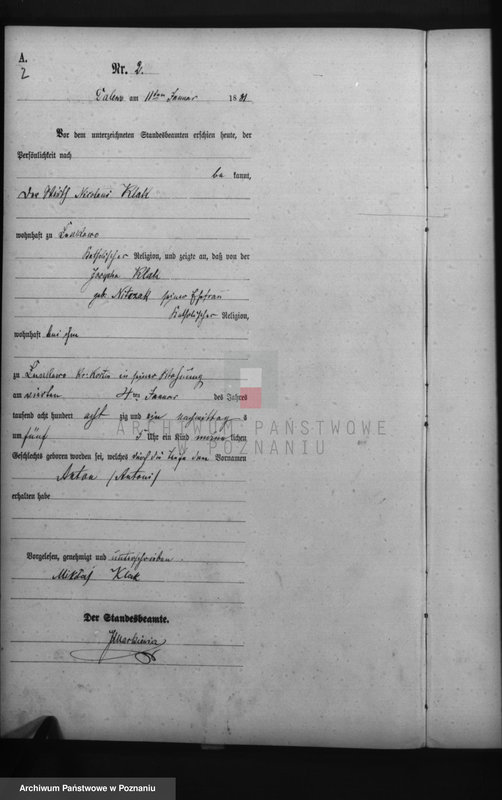 A.
2
Nr. 2.
Dalewo am 11ten Januar 1881
Vor dem unterzeichneten Standesbeamten erschien heute, der
Persönlichkeit nach
be kannt,
Der Wirth Nicolaus Klak
wohnhaft zu
katholischer Religion, und zeigte an, daß von der
Josepha Klak
geb. seiner Ehefrau
katholischer Religion,
wohnhaft bei ihm
zu in seiner Wohnung
am vierten 4ten Januar des Jahres
tausend acht hundert acht zig und ein nachmittag s
um fünf 5 Uhr ein Kind männ lichen
Geschlechts geboren worden sei, welches durch die Taufe den Vornamen
Anton (Antoni)
erhalten habe
Vorgelesen, genehmigt und unterschrieben
Mikołaj Klak
Der Standesbeamte.
ARCHIWUM PAŃSTWOWE
W POZNANIU
Archiwum Państwowe w Poznaniu